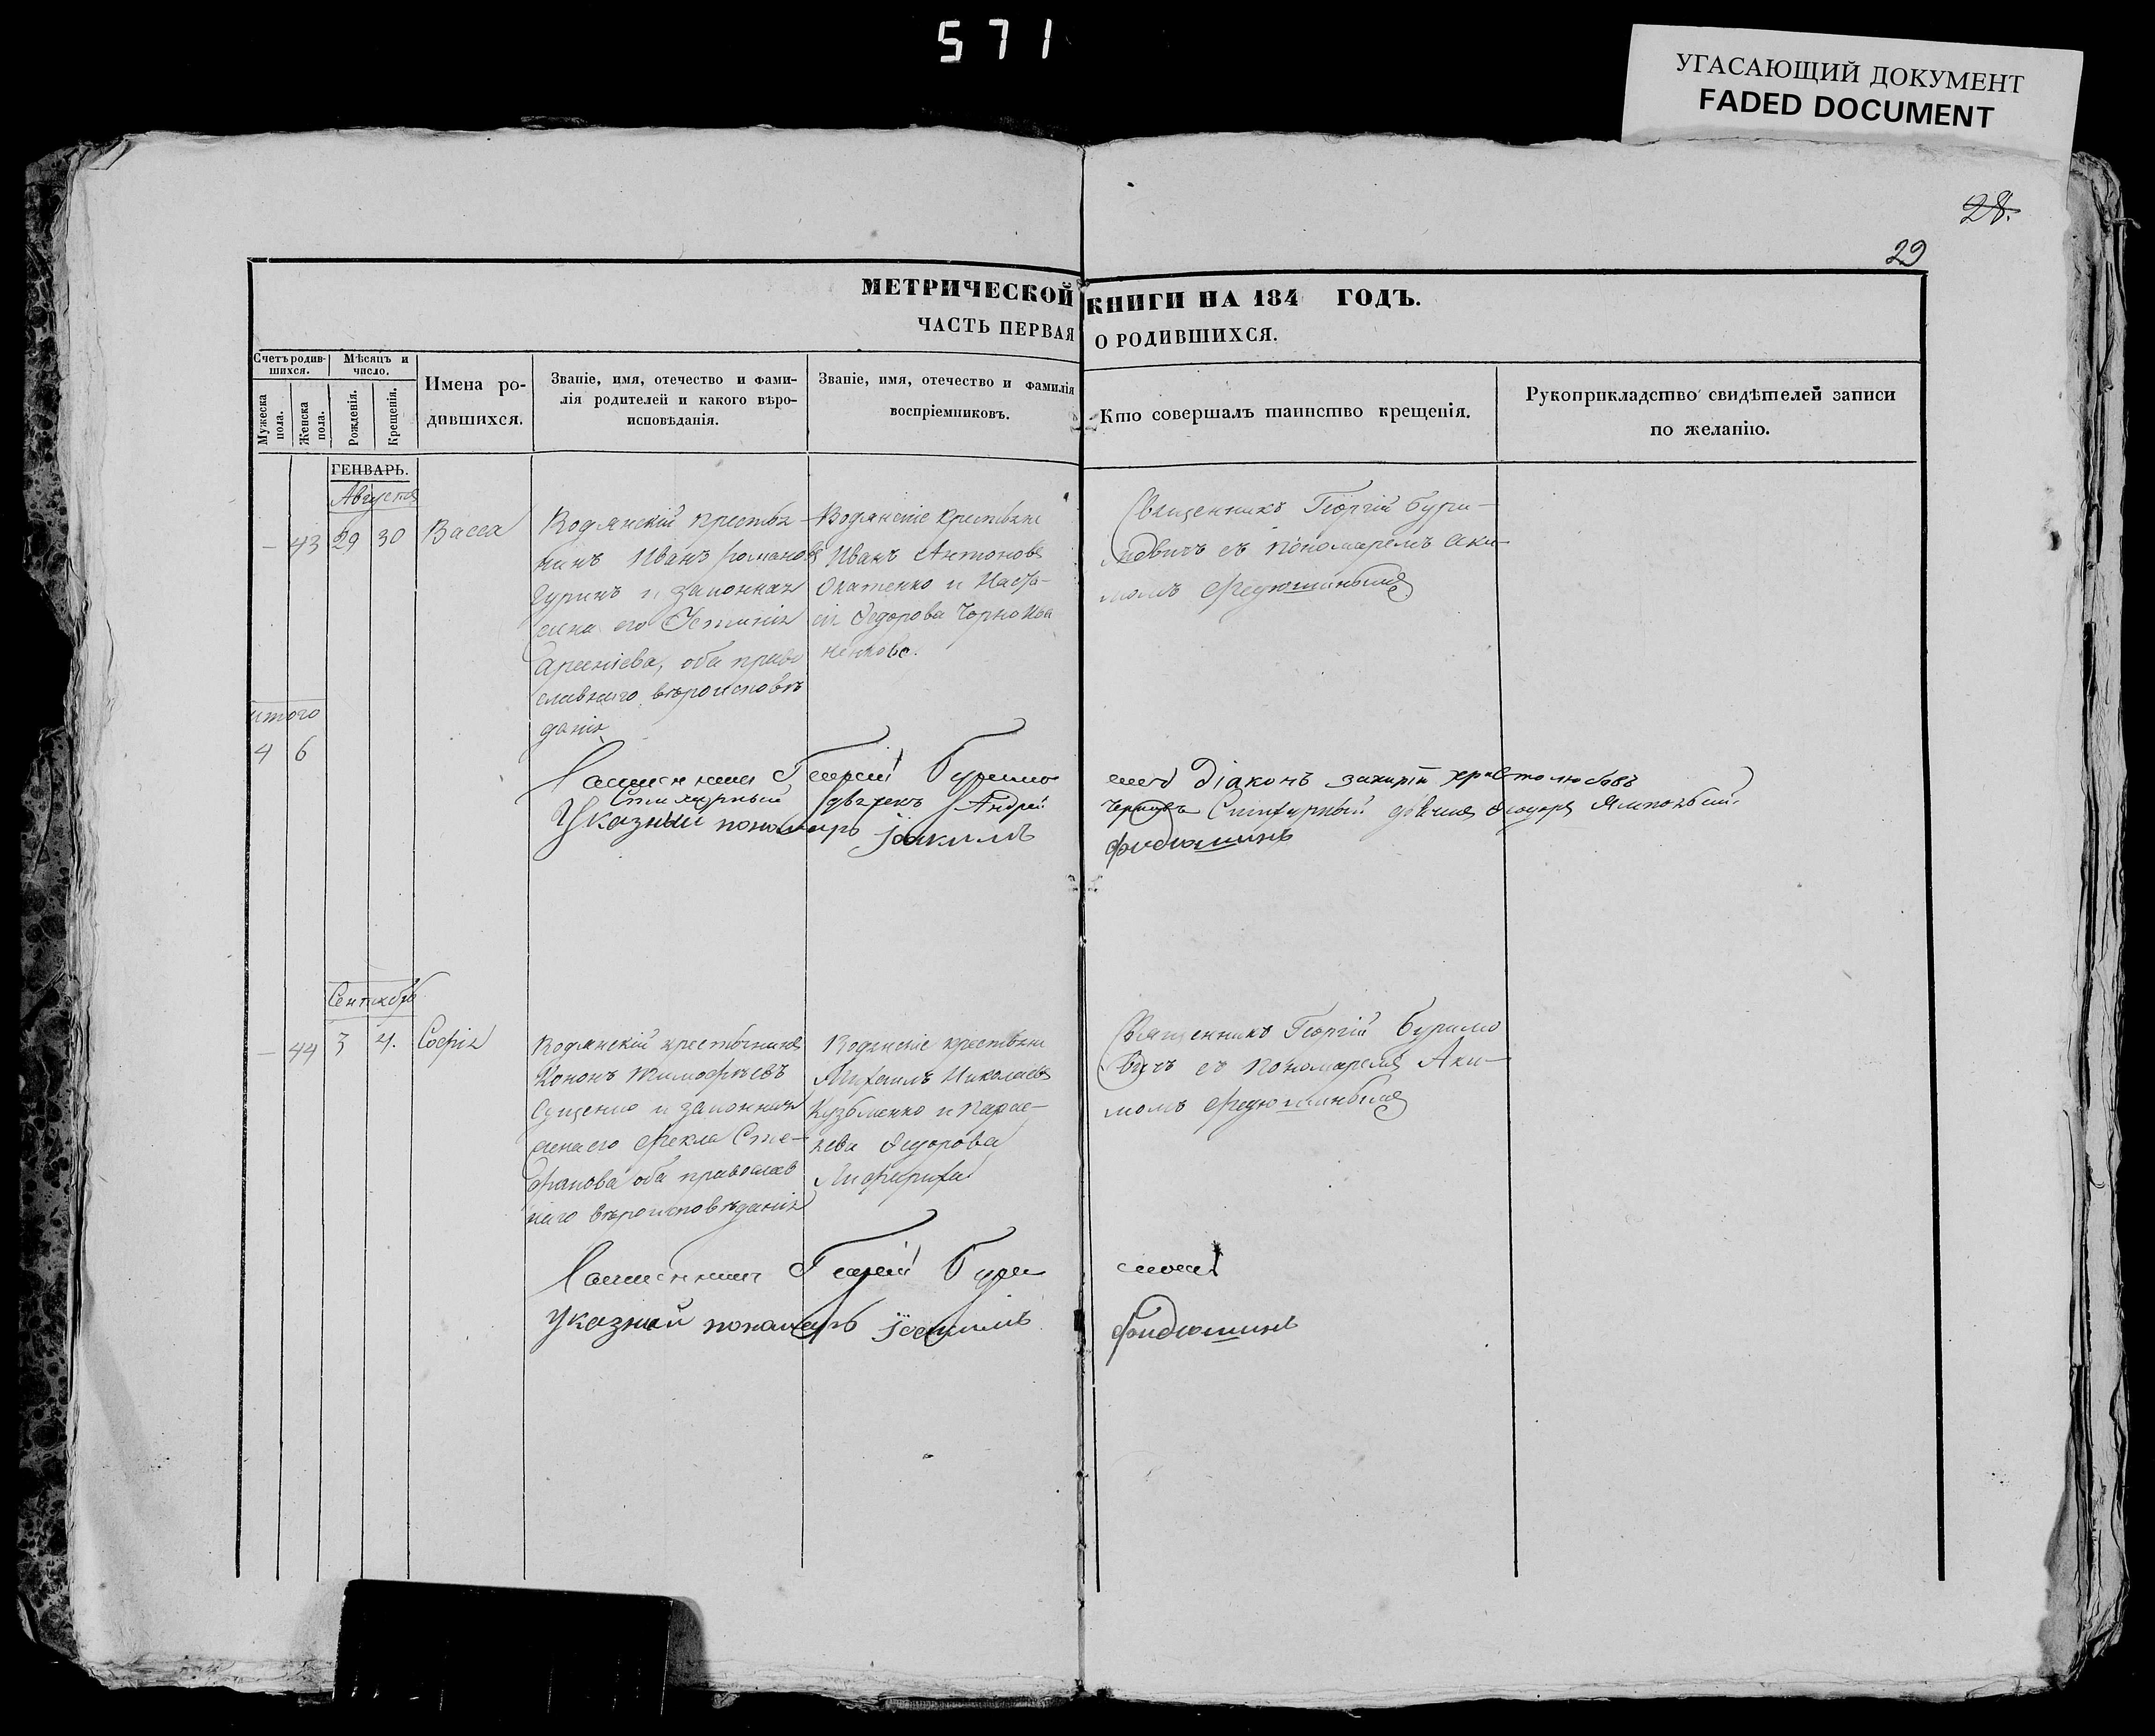 571
УГАСАЮЩИЙ ДОКУМЕНТ
FADED DOCUMENT
28.
29
МЕТРИЧЕСКОЙ КНИГИ НА 184 ГОДЪ.
ЧАСТЬ ПЕРВАЯ О РОДИВШИХСЯ.
Счетъ родив-
шихся.
Мужеска
пола.
Женска
пола.
Мѣсяцъ и
число.
Рожденія.
Крещенія.
Имена ро-
дившихся.
Званіе, имя, отечество и фами-
лія родителей и какого вѣро-
исповѣданія.
Званіе, имя, отечество и фамилія
воспріемниковъ.
Кто совершалъ таинство крещенія.
Рукоприкладство свидѣтелей записи
по желанію.
ГЕНВАРЬ.
Августа
– 43 29 30 Васса
Водянскій крестья-
нинъ Иванъ Романовъ
Гуринъ и законная
жена его Устинія
Арсеніева, оба право
славнаго вѣроисповѣ
данія
Водянскіе крестьяне
Иванъ Антоновъ
и Наста-
сія Федорова
Священникъ Георгій Бури-
мовичъ съ пономаремъ Аки-
момъ Федюшинымъ
итого
4 6
Священникъ Георгій Буримо
вичъ Діаконъ Захарій Христолюбовъ
Стихарный Андрей
Стихарный Ямпольскій
Указный пономарь Іоакимъ
Федюшинъ
Сентябрь
– 44 3 4. Софія
Водянскій крестьянинъ
Кононъ Тимофѣевъ
и законная
жена его Фекла Сте-
фанова оба православ
наго вѣроисповѣданія
Водянскіе крестьяне
Михаилъ Николаевъ
Кузьменко и Парас-
кева Федорова
Священникъ Георгій Буримо
вичъ съ пономаремъ Аки-
момъ Федюшинымъ
Священникъ Георгій Бури
мовичъ
Указный пономарь Іоакимъ
Федюшинъ